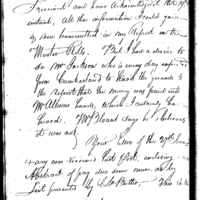 received and have acknowledged the 19th
instant, All the information I could gain
is now transmitted in my Report on the
Muster Rolls. But I had a desire to
see Mr Jackson who is every day expected
from Cumberland to know the grounds to
the report that the money was paid into
McAllisters hands, which I certainly have
heard. Mr Hoard says he believes
it was not.
Your letter of the 27th June
was received last Post, enclosing an
Abstract of pay due some men, as by
List presented by Col. Butler. This